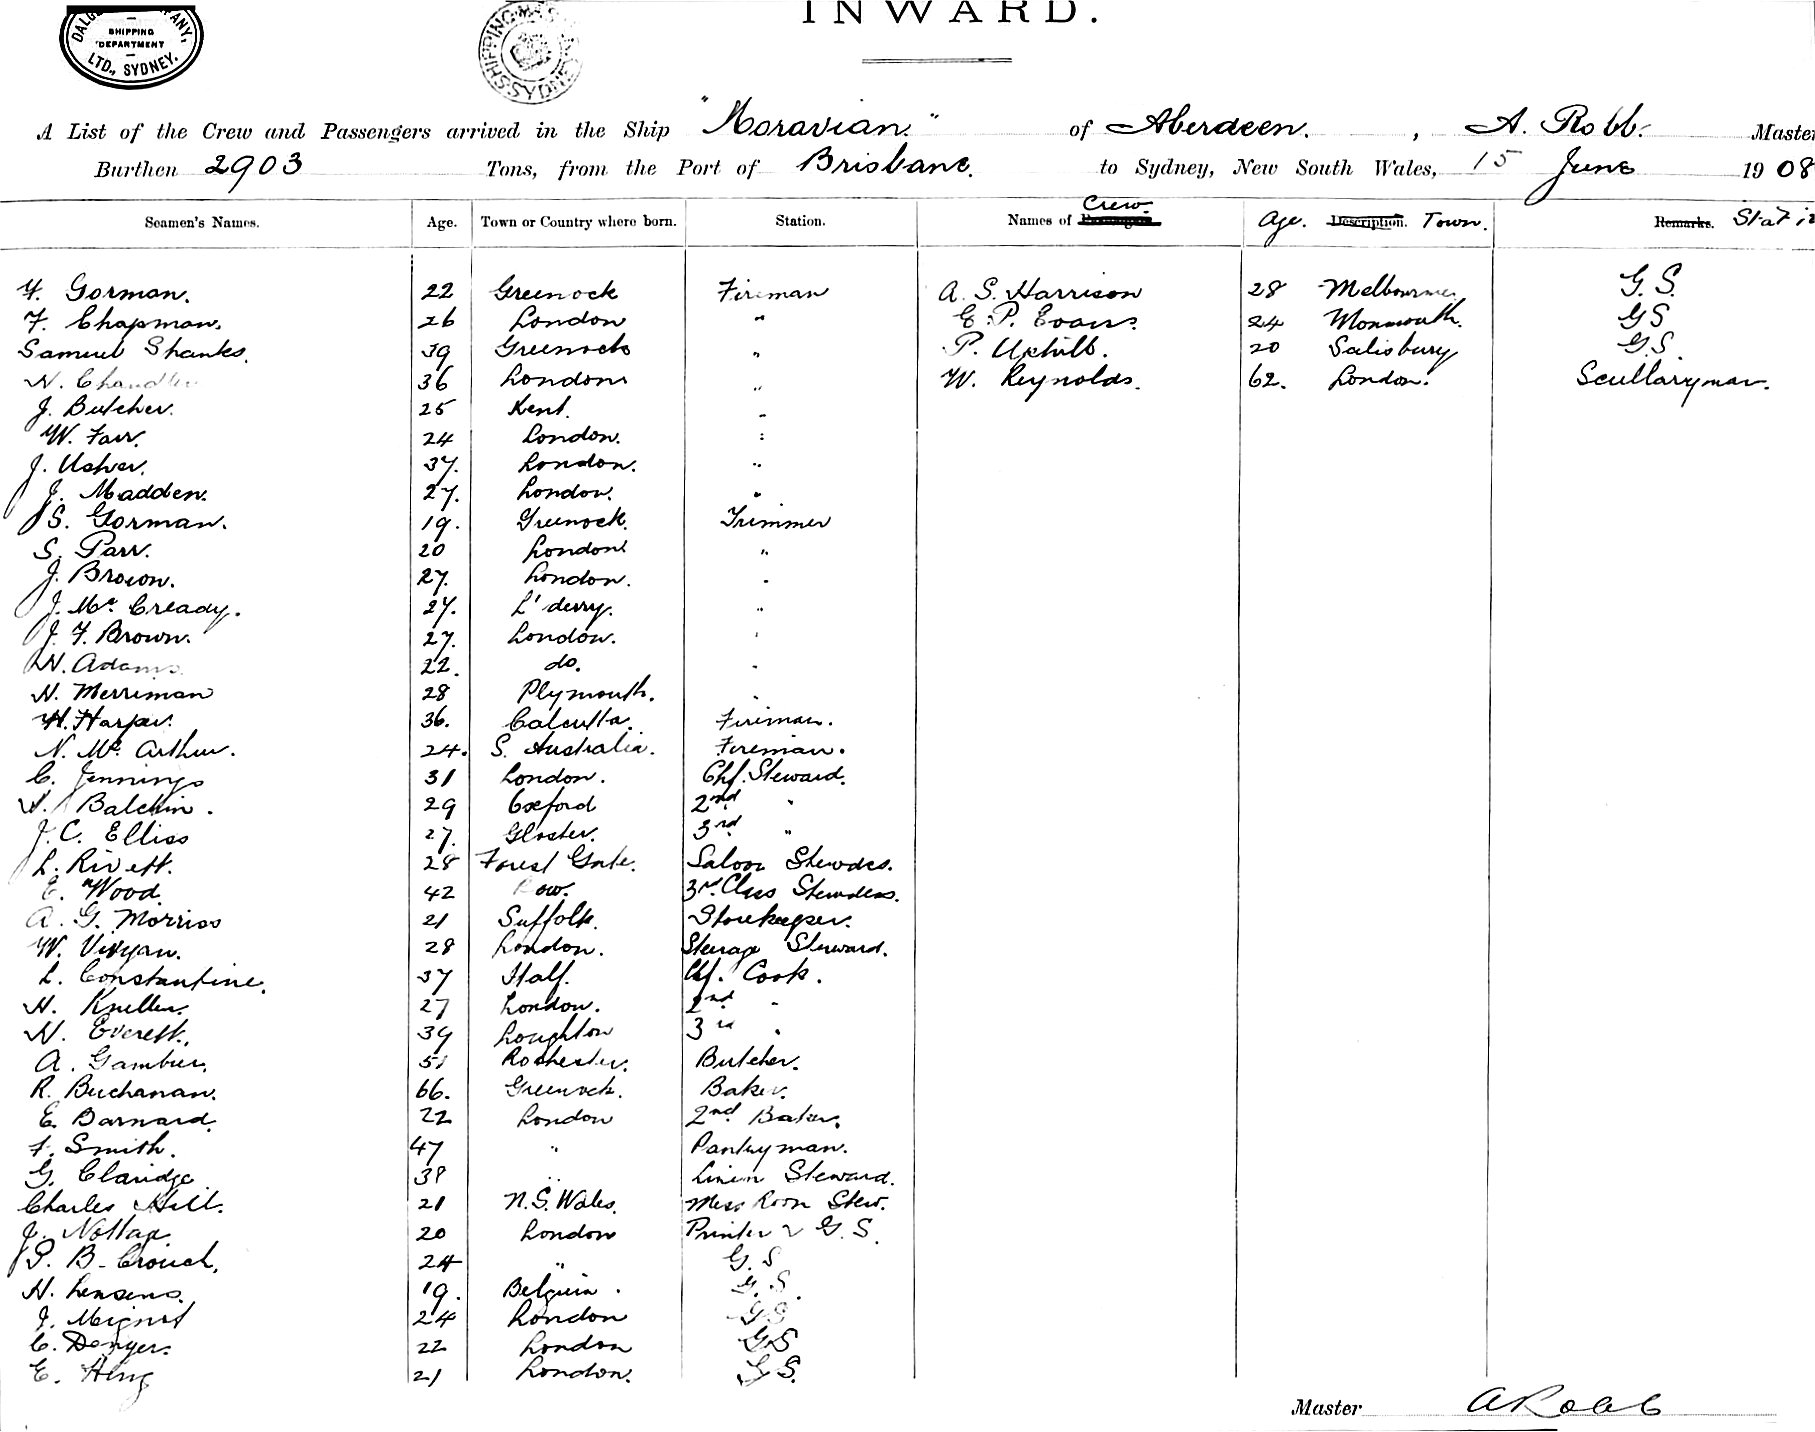 INWARD.
DALG COMPANY,
SHIPPING
DEPARTMENT
LTD., SYDNEY.
SHIPPING SYDNEY
A List of the Crew and Passengers arrived in the Ship "Moravian." of Aberdeen. , A. Robb. Master
Burthen 2903 Tons, from the Port of Brisbane. to Sydney, New South Wales, 15 June 1908
Crew
Seamen's Names. Age. Town or Country where born. Station. Names of Age. Description. Town. Remarks. Statio
Gorman. 22 Greenock Fireman A. S. Harrison 28 Melbourne. G.S.
F. Chapman. 26 London " E. P. Evans. 24 Monmouth. GS
Samuel Shanks. 39 Greenock " P. Uphill. 20 Salisbury G.S.
H. Chandler 36 London " W. Reynolds. 62. London. Sculleryman.
J. Butcher. 25 Kent. "
W. Farr. 24 London. "
J. Usher. 37. London. "
J. Madden. 27. London. "
S. Gorman. 19. Greenock. Trimmer
S. Parr. 20 London "
J. Brown. 27. London. "
J. Mc. Cready. 27. L'derry. "
J. F. Brown. 27. London. "
H. Adams. 22. do. "
H. Merriman 28 Plymouth. "
H. Harper. 36. Calcutta. Fireman.
N. Mc. Arthur. 24. S. Australia. Fireman.
C. Jennings 31 London. Chf. Steward.
H. Balchin. 29 Oxford 2nd "
J. C. Elliss 27. Gloster. 3rd "
L. Rivett. 28 Forest Gate. Saloon Stewdss.
E. Wood. 42 Bow. 3rd Class Stewdess.
A. G. Morriss 21 Suffolk. Storekeeper.
W. Vivyan. 28 London. Steerage Steward.
L. Constantine. 37 Italy. Chf. Cook.
H. Kneller. 27 London. 2nd "
H. Everett. 39 Loughton 3rd "
A. Gambier. 51 Rochester. Butcher.
R. Buchanan. 66. Greenock. Baker.
E. Barnard. 22 London 2nd Baker.
F. Smith. 47 " Pantryman.
G. Claridge 38 " Linen Steward.
Charles Hill. 21 N.S. Wales. Mess Room Stew.
J. Nottage. 20 London Printer & G.S.
P. B. Crouch. 24 " G.S
H. Lensens. 19. Belgium. G.S.
J. Mignot 24 London GS
C. Denyer. 22 London GS
E. 21 London. GS.
Master A Robb